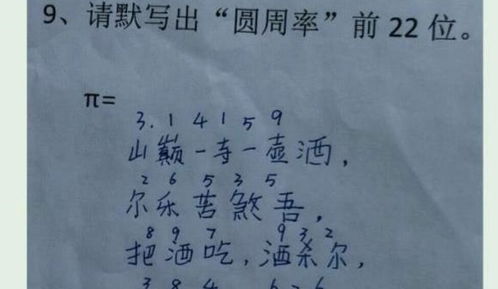 9、请默写出“圆周率”前 22 位。
π=
3. 1 4 1 5 9
山巅一寺一壶酒，
2 6 5 3 5
尔乐苦煞吾，
8 9 7 9 3 2
把酒吃，酒杀尔，
3 8 4 6 2 6